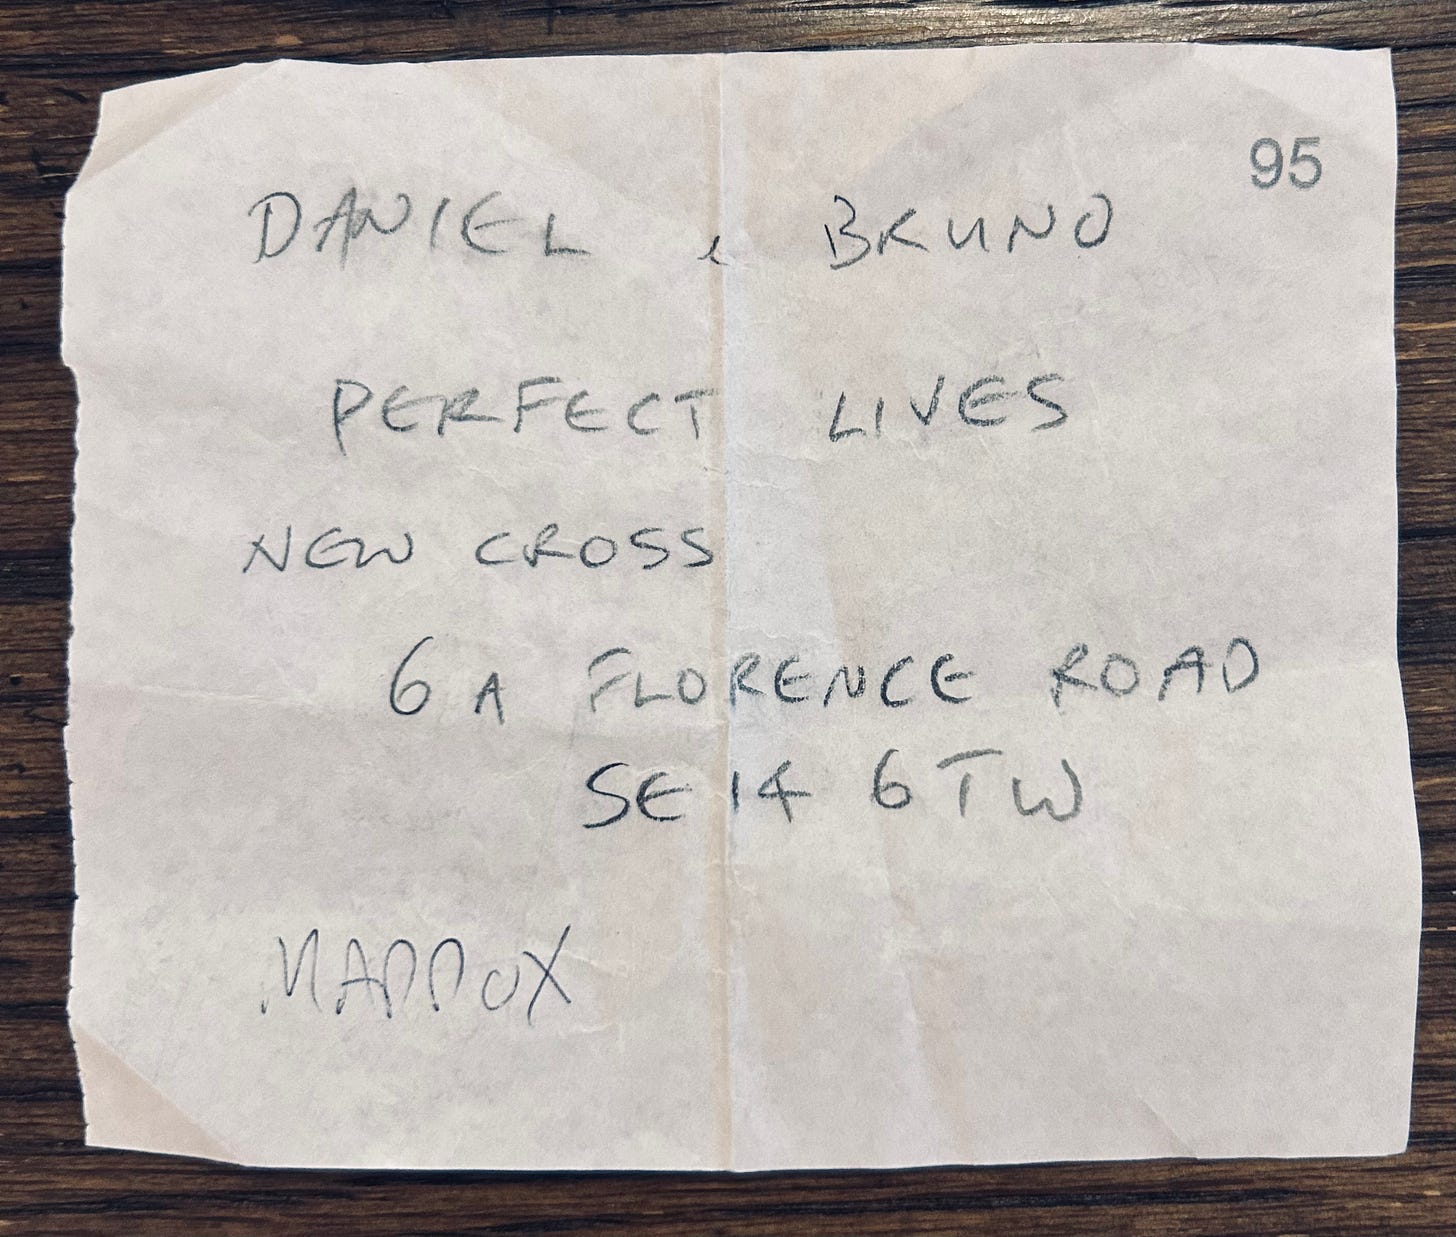 95
DANIEL & BRUNO
PERFECT LIVES
NEW CROSS
6A FLORENCE ROAD
SE14 6TW
MADDOX